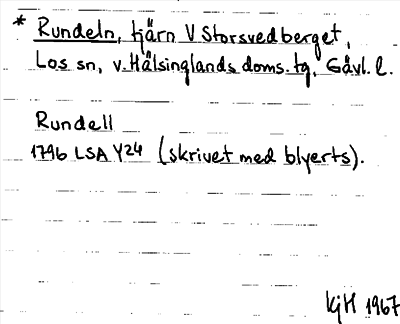 * Rundeln, tjärn V Storsvedberget,
Los sn, v. Hälsinglands doms. tg, Gävl. l.
Rundell
1796 LSA Y24 (skrivet med blyerts).
KjH 1967